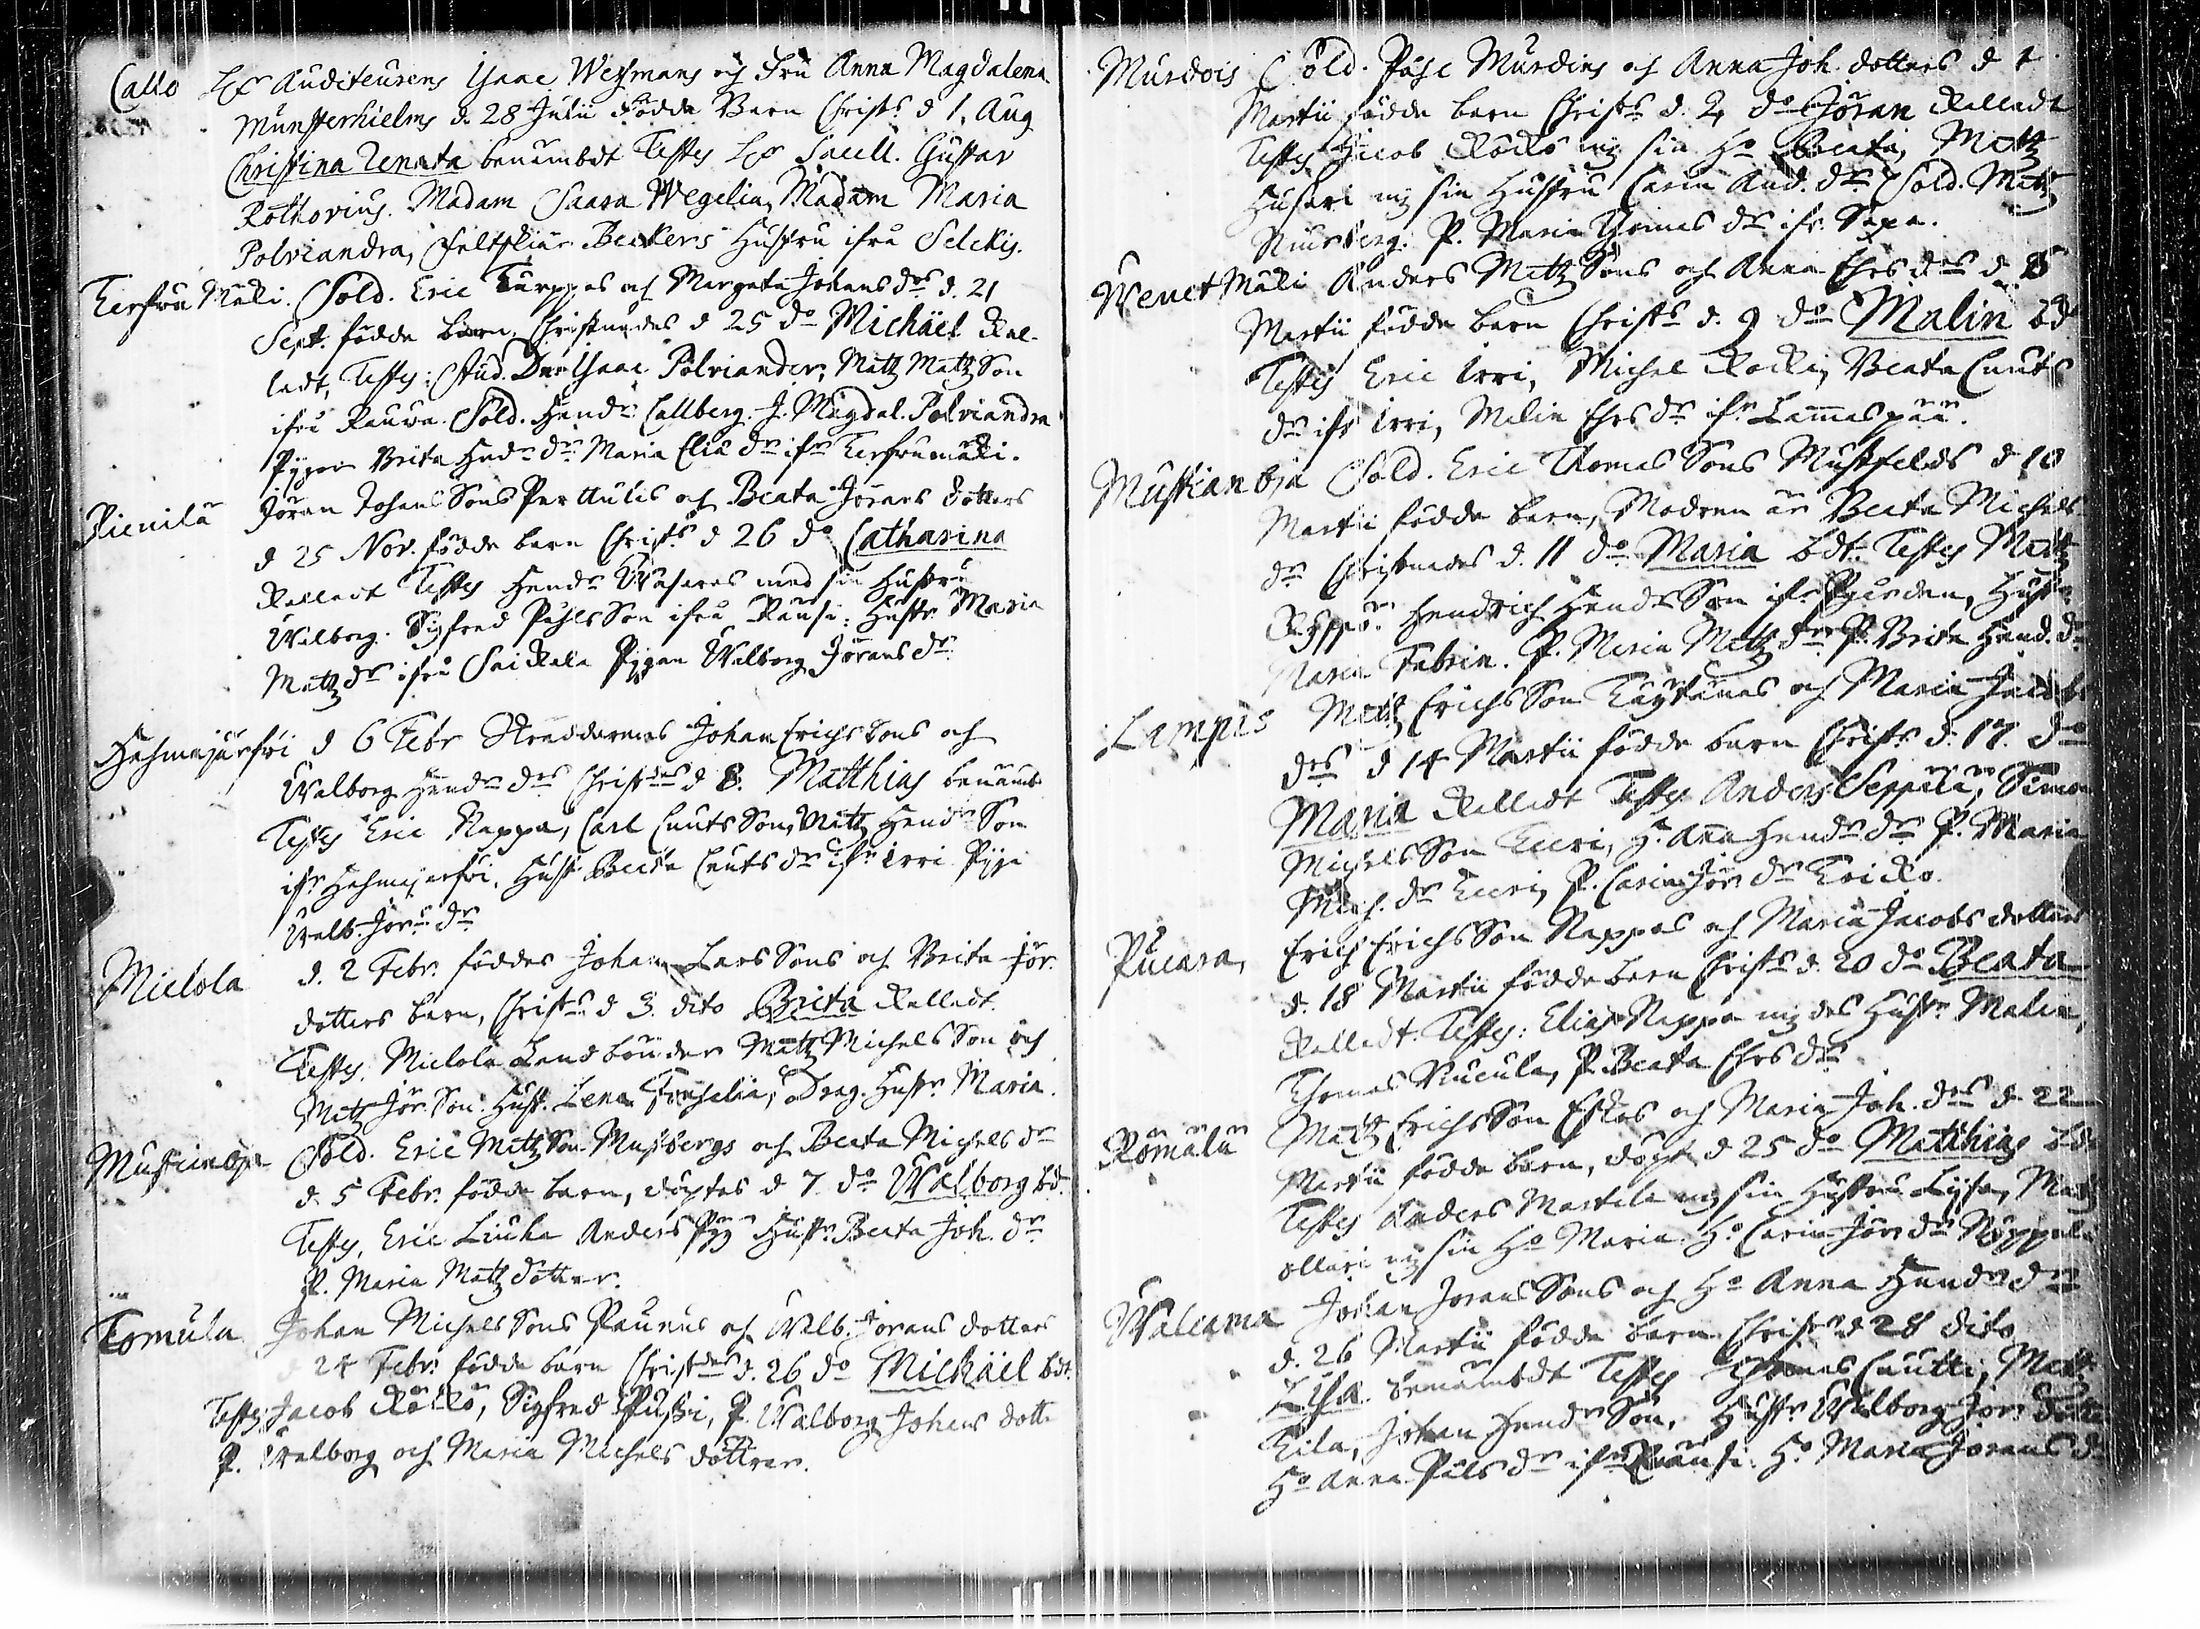 Callo Hr Auditeurens Isaac Weymans och Fru Anna Magdalena
Munsterhielms d. 28 Julii födde Barn Christs d 1. Aug
Christina Renata benämbdt Testes Hr Sacell. Gustav
Rothovius. Madam Saara Wegelia, Madam Maria
Polviandra, Feltskiär Beckers Hustru ifrå Selckis.
Mäki. Sold. Eric Turppas och Margeta Johansdr d. 21
Sept. födde barn, Christnades d 25 do Michäel Kal-
ladt, Testes: Stud. Dn Isaac Polviander, Matz Matzson
ifrå Rauva. Sold. Hendr Callberg. J. Magdal. Polviandra
Pigor Brita Hendr dr Maria Eliä dr ifr
Pienilä Jöran Johansons Perttulis och Beata Jörans dotters
d 25 Nov. födde barn Christs d 26 do Catharina
Kalladt Testes Hendr med sin Hustru
Walborg. Sigfred Påhlsson ifrå Hustr Maria
Matz dr ifrå Saickala Pigan Walborg Jörans dr
d 6 Febr Skräddarens Johan Erichsons och
Walborg Hendr drs Christnades d 8. Matthias benämb
Testes Eric Nappa, Carl Cnutsson, Matz Hendrson
ifr Hustr Beata Cnuts dr ifr Irri Pig
Walb. Jör. dr
Mielola d. 2 Febr. föddes Johan Larssons och Brita Jör.
dotters barn, Christs d 3. dito Brita Kalladt.
Testes, Mielola Landbonden Matz Michelsson och
Matz Jör. son. Hust. Lena Drag. Hustr. Maria.
Sold. Eric Matzson Mustbergs och Beata Michels dr
d. 5 Febr. födde barn, döptes d 7. do Walborg bd.
Testes, Eric Liucka Anders Hustr. Beata Joh. dr
P. Maria Matz dotter.
Tomula Johan Michelssons Paunus och Walb. Jörans dotters
d 24 Febr. födde barn Christnades d. 26 do Michäel bdt.
Testes Jacob Röckö, Sigfred P. Walborg Johans dott
P. Walborg och Maria Michels döttrar.
Murdois Sold. Påhl Murdins och Anna Joh. dotters d 1
Martii födde barn Christs d. 2 do Jöran Kalladt
Testes Jacob Röckö mz sin Ho Beata, Matz
Husari mz sin Hustru Carin And. dr Sold. Matz
P. Maria Thomas dr ifr
Mäki Anders Matzsons och Anna Ehrs drs d. 8
Martii födde barn Christs d. 9 do Malin bd
Testes Eric Irri, Michel Beata Cnuts
dr ifr Irri, Malin Ehrs dr ifr Lammaspää.
Sold. Eric Thomassons Mustfelds d 10
Martii födde barn, Modren är Beata Michels
dr Christnades d. 11 do Maria bdt. Testes Matz
Hendrich Hendrson ifr Hustr
Maria Fabrin. P. Maria Matz dr P. Brita Hend. dr
Lampis Matz Erichsson och Maria Jacobs
drs d 14 Martii födde barn Christs d. 17. do
Maria Kalladt Testes Anders Seppälä, Simon
Michelsson H. Anna Hendrs dr P. Maria
Mich. dr P. Carin Jör. dr
Pucara, Erich Erichsson Nappas och Maria Jacobs dotters
d. 18 Martii födde barn Christs d. 20 do Beata
Kalladt. Testes: Elias Nappa mz des Hustr Malin,
Thomas P. Beata Ehrs dr
Matz Erichsson och Maria Joh. drs d 22
Martii födde barn, döpt d 25 do Matthias bd
Testes Anders Martila mz sin Hustru Lysa, Matz
Ollari mz sin Ho Maria. Ho Carin Jörs dr
Walcama Johan Joranssons och Ho Anna Hendrs drs
d. 26 Martii födde barn Christs d 28 dito
Lisa. benämbdt Testes Thomas Cnutti, Matt.
Johan Hendrson, Hustr Walborg Jor. dotter
Ho Anna Påls dr ifr Ho Maria Jorans d